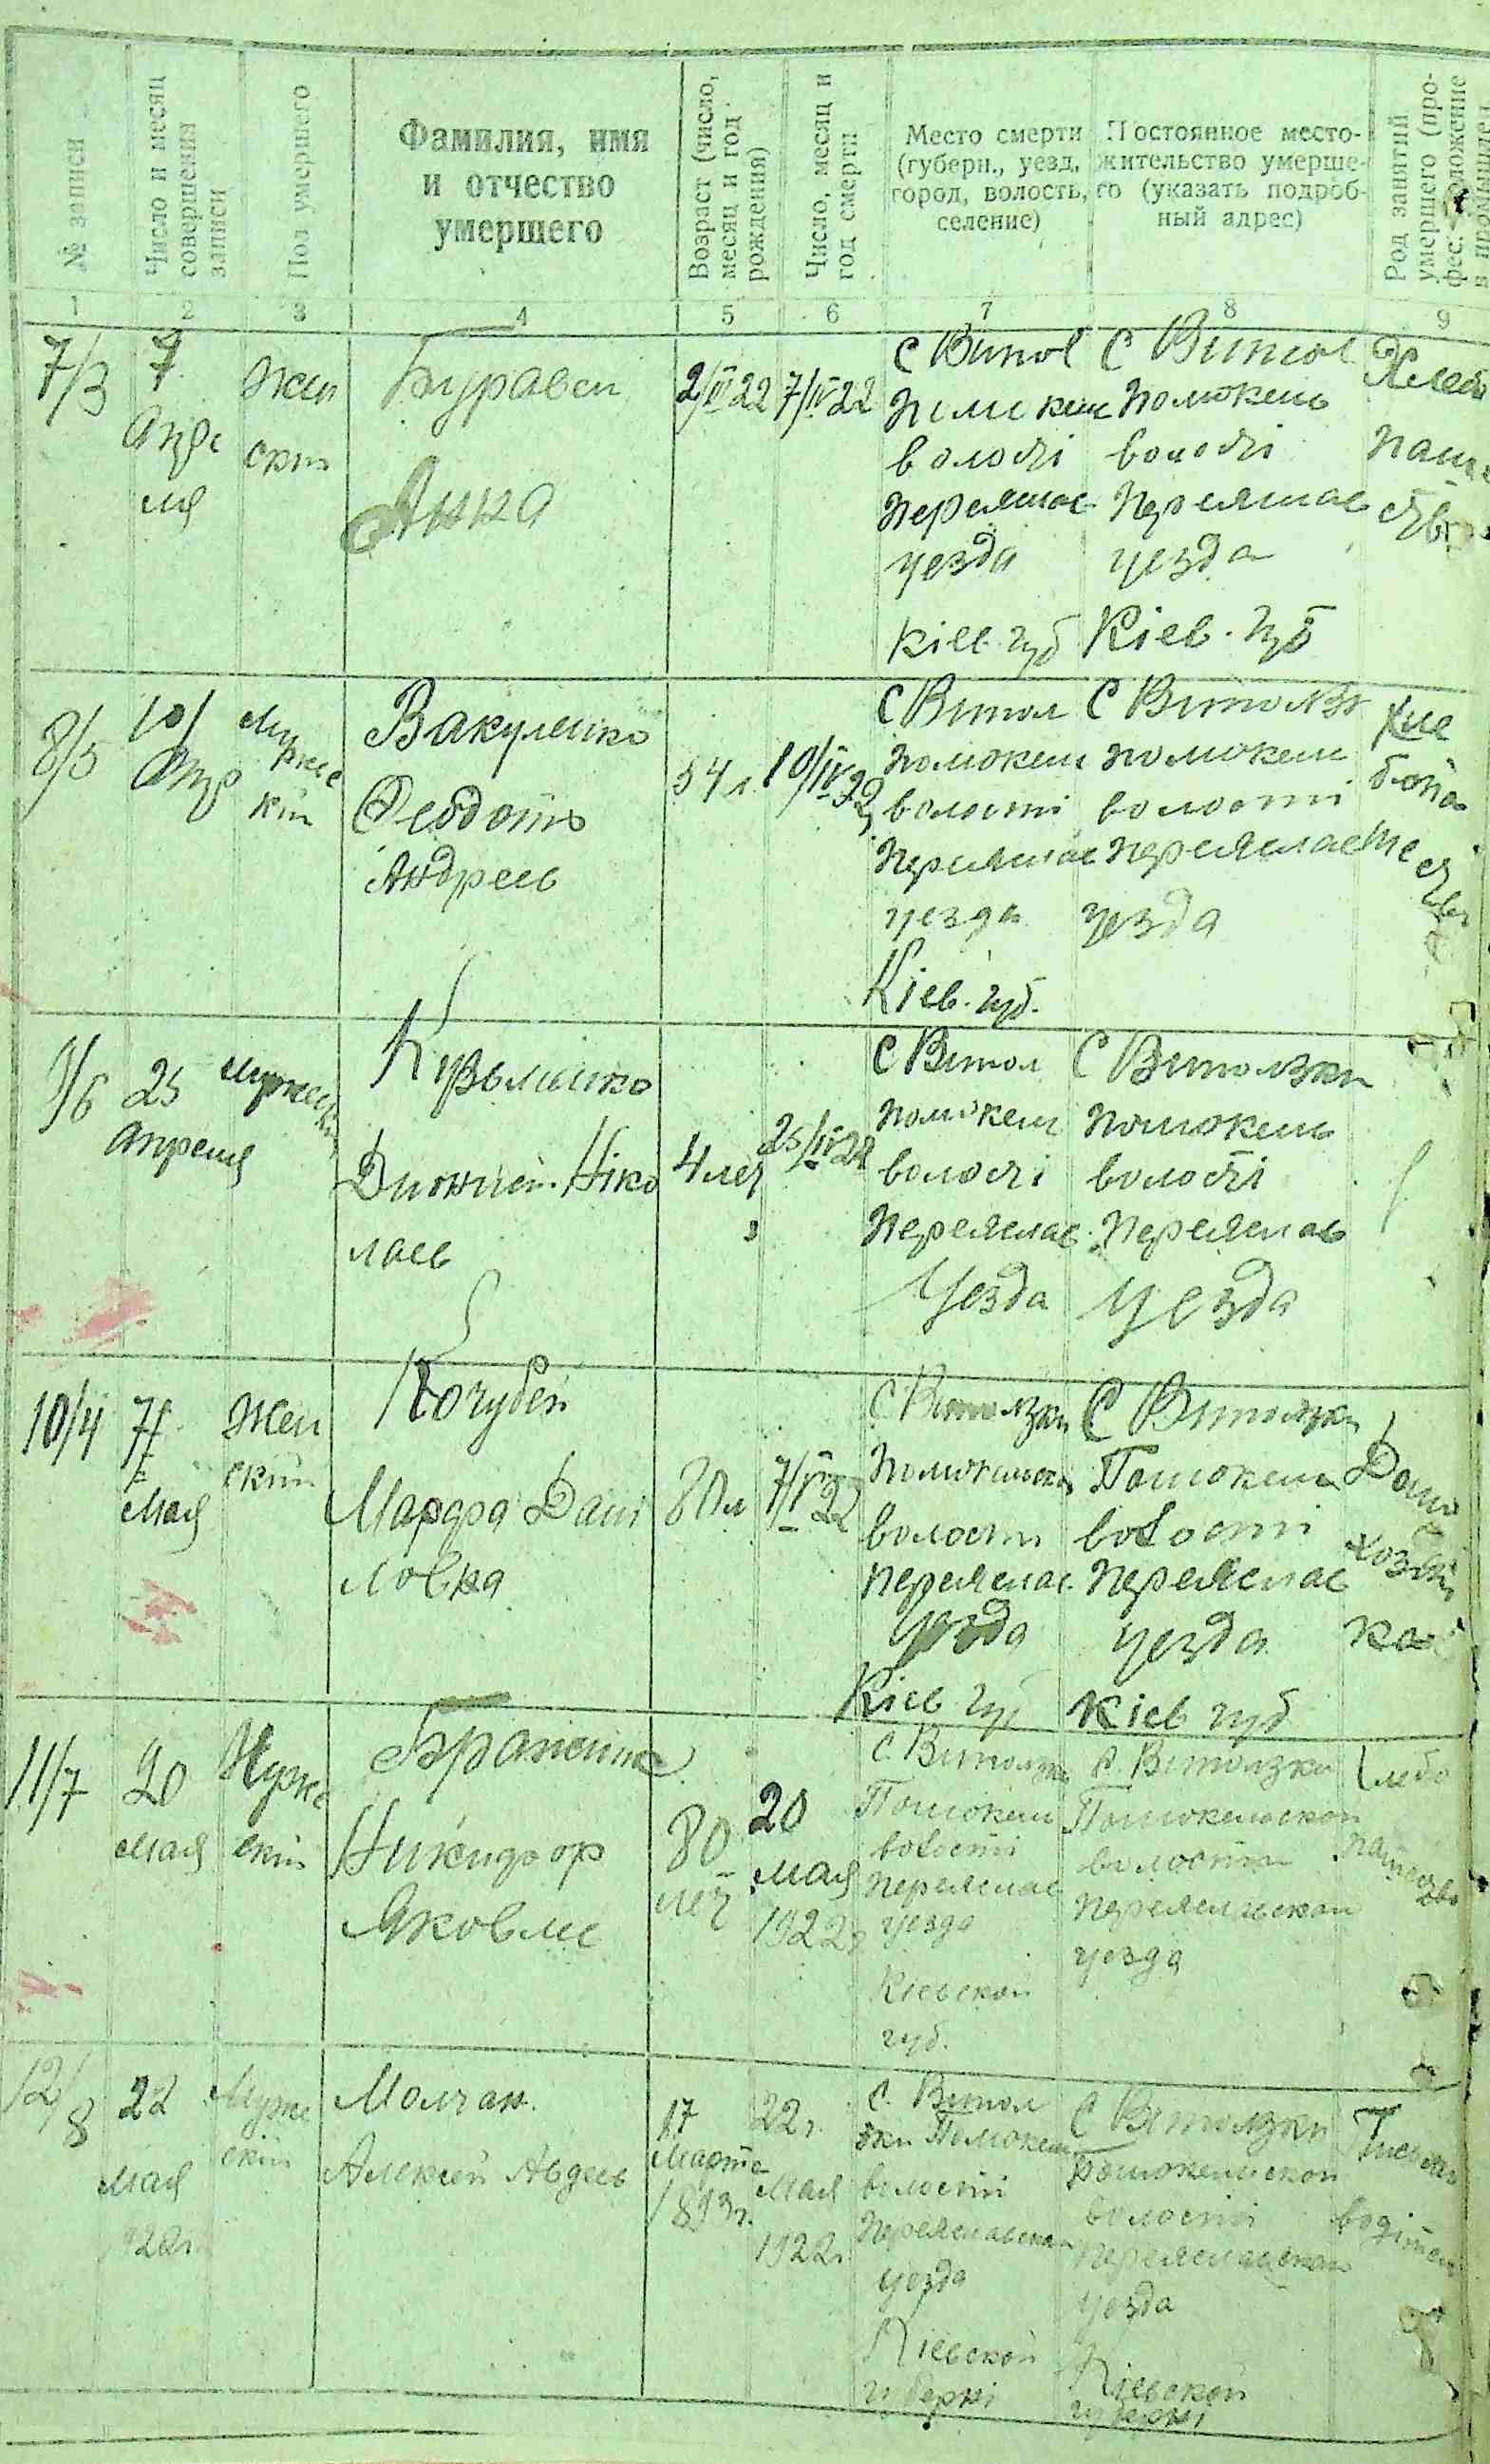 № записи
Число и месяц совершения записи
Пол умершего
Фамилия, имя
и отчество
умершего
Возраст (число, месяц и год рождения)
Число, месяц и год смерти
Место смерти
(губерн., уезд,
город, волость,
селение)
Постоянное место-
жительство умерше-
го (указать подроб-
ный адрес)
Род занятий
умершего (про-
фес. положение
1 2 3 4 5 6 7 8 9
7/3
7
Апре
ля
Жен
скій
Буравей
Анна
2/IV 22
7/IV 22
с Витов
волості
Переяслав
уезда
Кіев. губ
С Витов
Помокель
волості
Переяслав
уезда
Кіев. губ
Хлебо
паше
8/5
10/
Апр
Мужс
кій
Вакуленко
Феодотъ
Андреев
54 л.
10/IV 22
с Витол
Помокел
волости
Переяслав
уезда
Кіев. губ.
С Витолзк
помокел
волости
Переяслав
уезда
Хле
бопа
9/6
25
Апреля
Мужескій
Кузьменко
Діонисій Ніко
лаев
4 лет
25/IV 22
с Витол
помокел
волості
Переяслав.
Уезда
С Витолзки
Помокель
волості
Переяслав
Уезда
10/4
7
Мая
Жен
скій
Кочубей
Марфа Дани
ловна
80 л
7/V 22
С Витолзки
волости
Переяслав.
Уезда
Кіев губ
С Витолзки
Помокел
волости
Переяслав
уезда
Кіев губ
Домо
хозяй
ка
11/7
20
Мая
Мужс
скій
Никифор
Яковле
80
лет
20
мая
1922 г
С Витолзки
Помокел
волости
Переяслав
уезда
Кіевской
губ.
С. Витолзки
Помокельской
волости
уезда
Хлебо
12/8
22
мая
1922 г.
Мужс
скій
Молчан.
Алексей Авдеев
17
Марта
1893 г.
22 г.
Мая
1922 г.
с. Витол
зки Помокел
волости
Переяславской
уезда
Кіевской
губерні
С Витолзки
Помокельской
волости
Переяславской
уезда
Кіевской
губерні